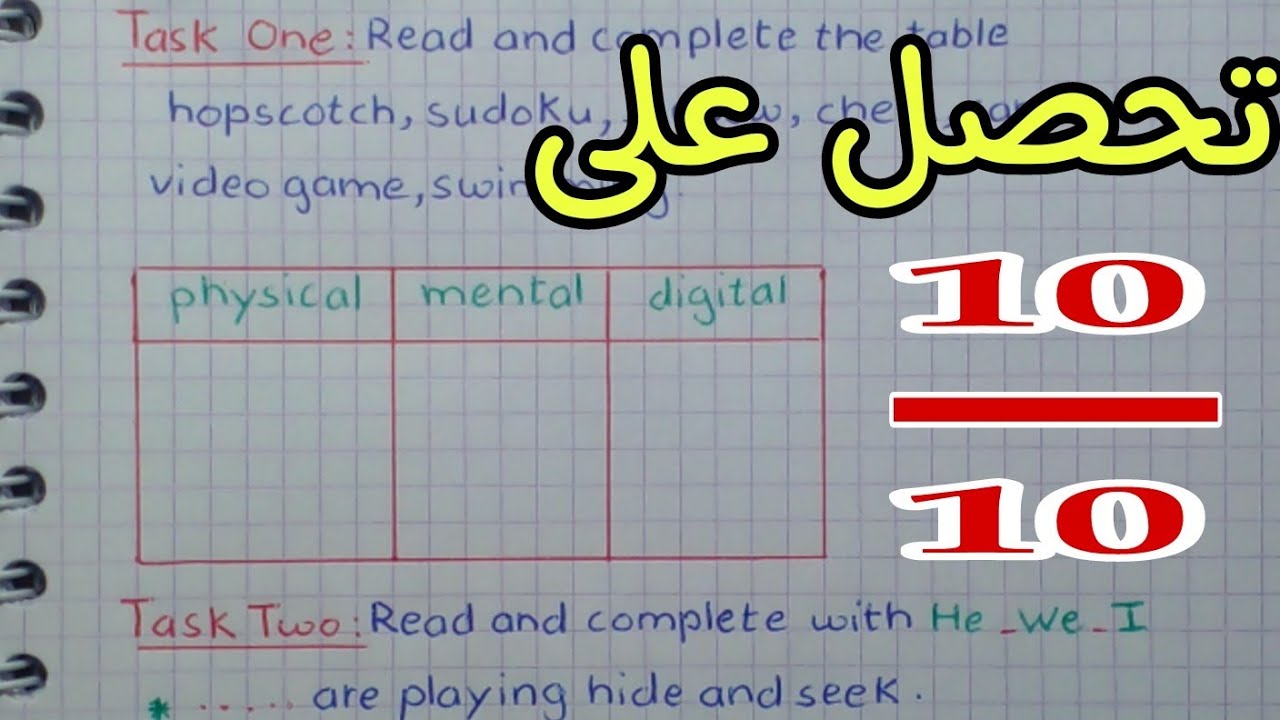 Task One: Read and complete the table
hopscotch, sudoku,
video game,
تحصل على
10
10
physical mental digital
Task Two: Read and complete with He - we - I
* ...... are playing hide and seek.